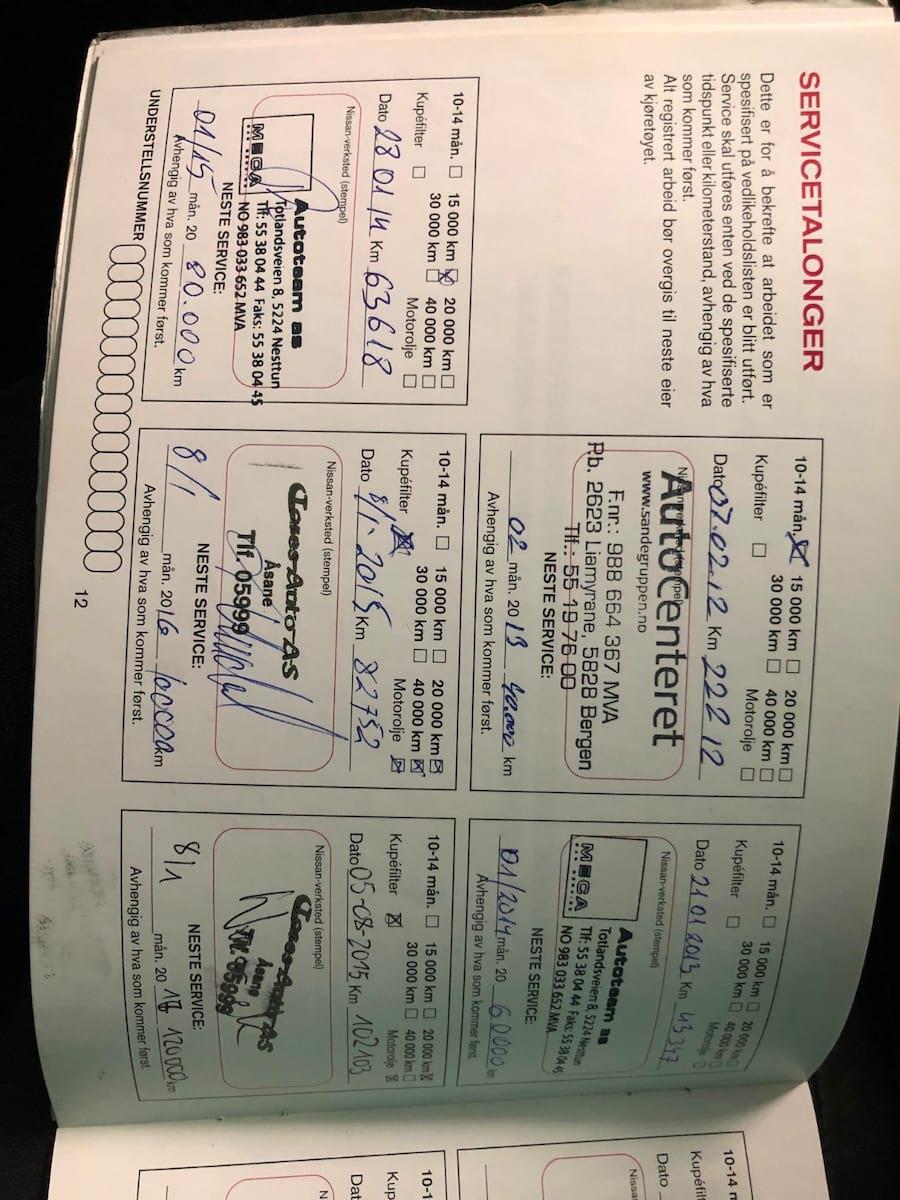 SERVICETALONGER
Dette er for å bekrefte at arbeidet som er
spesifisert på vedlikeholdslisten er blitt utført.
Service skal utføres enten ved de spesifiserte
tidspunkt eller kilometerstand, avhengig av hva
som kommer først.
Alt registrert arbeid bør overgis til neste eier
av kjøretøyet.
10-14 mån. 15 000 km 20 000 km
30 000 km 40 000 km
Kupéfilter Motorolje
Dato 07.02.12 Km 222 12
AutoCenteret
www.sandegruppen.no
F.nr.: 988 664 367 MVA
P.b. 2623 Liamyrane, 5828 Bergen
Tlf.: 55 19 76 00
NESTE SERVICE:
02 mån. 2013 40.000 km
Avhengig av hva som kommer først.
10-14 mån. 15 000 km 20 000 km
30 000 km 40 000 km
Kupéfilter Motorolje
Dato 21 01 2013 Km 43 347
Nissan-verksted (stempel)
Autoteam as
Totlandsveien 8, 5224 Nesttun
MECA Tlf: 55 38 04 44 Faks: 55 38 04 45
NO 983 033 652 MVA
NESTE SERVICE:
01/2014 mån. 20 60000 km
Avhengig av hva som kommer først.
10-14 mån. 15 000 km 20 000 km
30 000 km 40 000 km
Kupéfilter Motorolje
Dato 28 01 14 Km 63618
Nissan-verksted (stempel)
Autoteam as
Totlandsveien 8, 5224 Nesttun
MECA Tlf: 55 38 04 44 Faks: 55 38 04 45
NO 983 033 652 MVA
NESTE SERVICE:
01/15 mån. 20 80.000 km
Avhengig av hva som kommer først.
10-14 mån. 15 000 km 20 000 km
30 000 km 40 000 km
Kupéfilter Motorolje
Dato 8/1 2015 Km 82752
Nissan-verksted (stempel)
Auto AS
Åsane
Tlf. 05999
NESTE SERVICE:
8/1 mån. 2016 100000 km
Avhengig av hva som kommer først.
10-14 mån. 15 000 km 20 000 km
30 000 km 40 000 km
Kupéfilter Motorolje
Dato 05-08-2015 Km 102103
Nissan-verksted (stempel)
AS
Åsane
Tlf. 05999
NESTE SERVICE:
8/1 mån. 20 120000 km
Avhengig av hva som kommer først.
UNDERSTELLSNUMMER
12
10-14
Kupéfil
Dato
Nissa
10-1
Kup
Dat
N